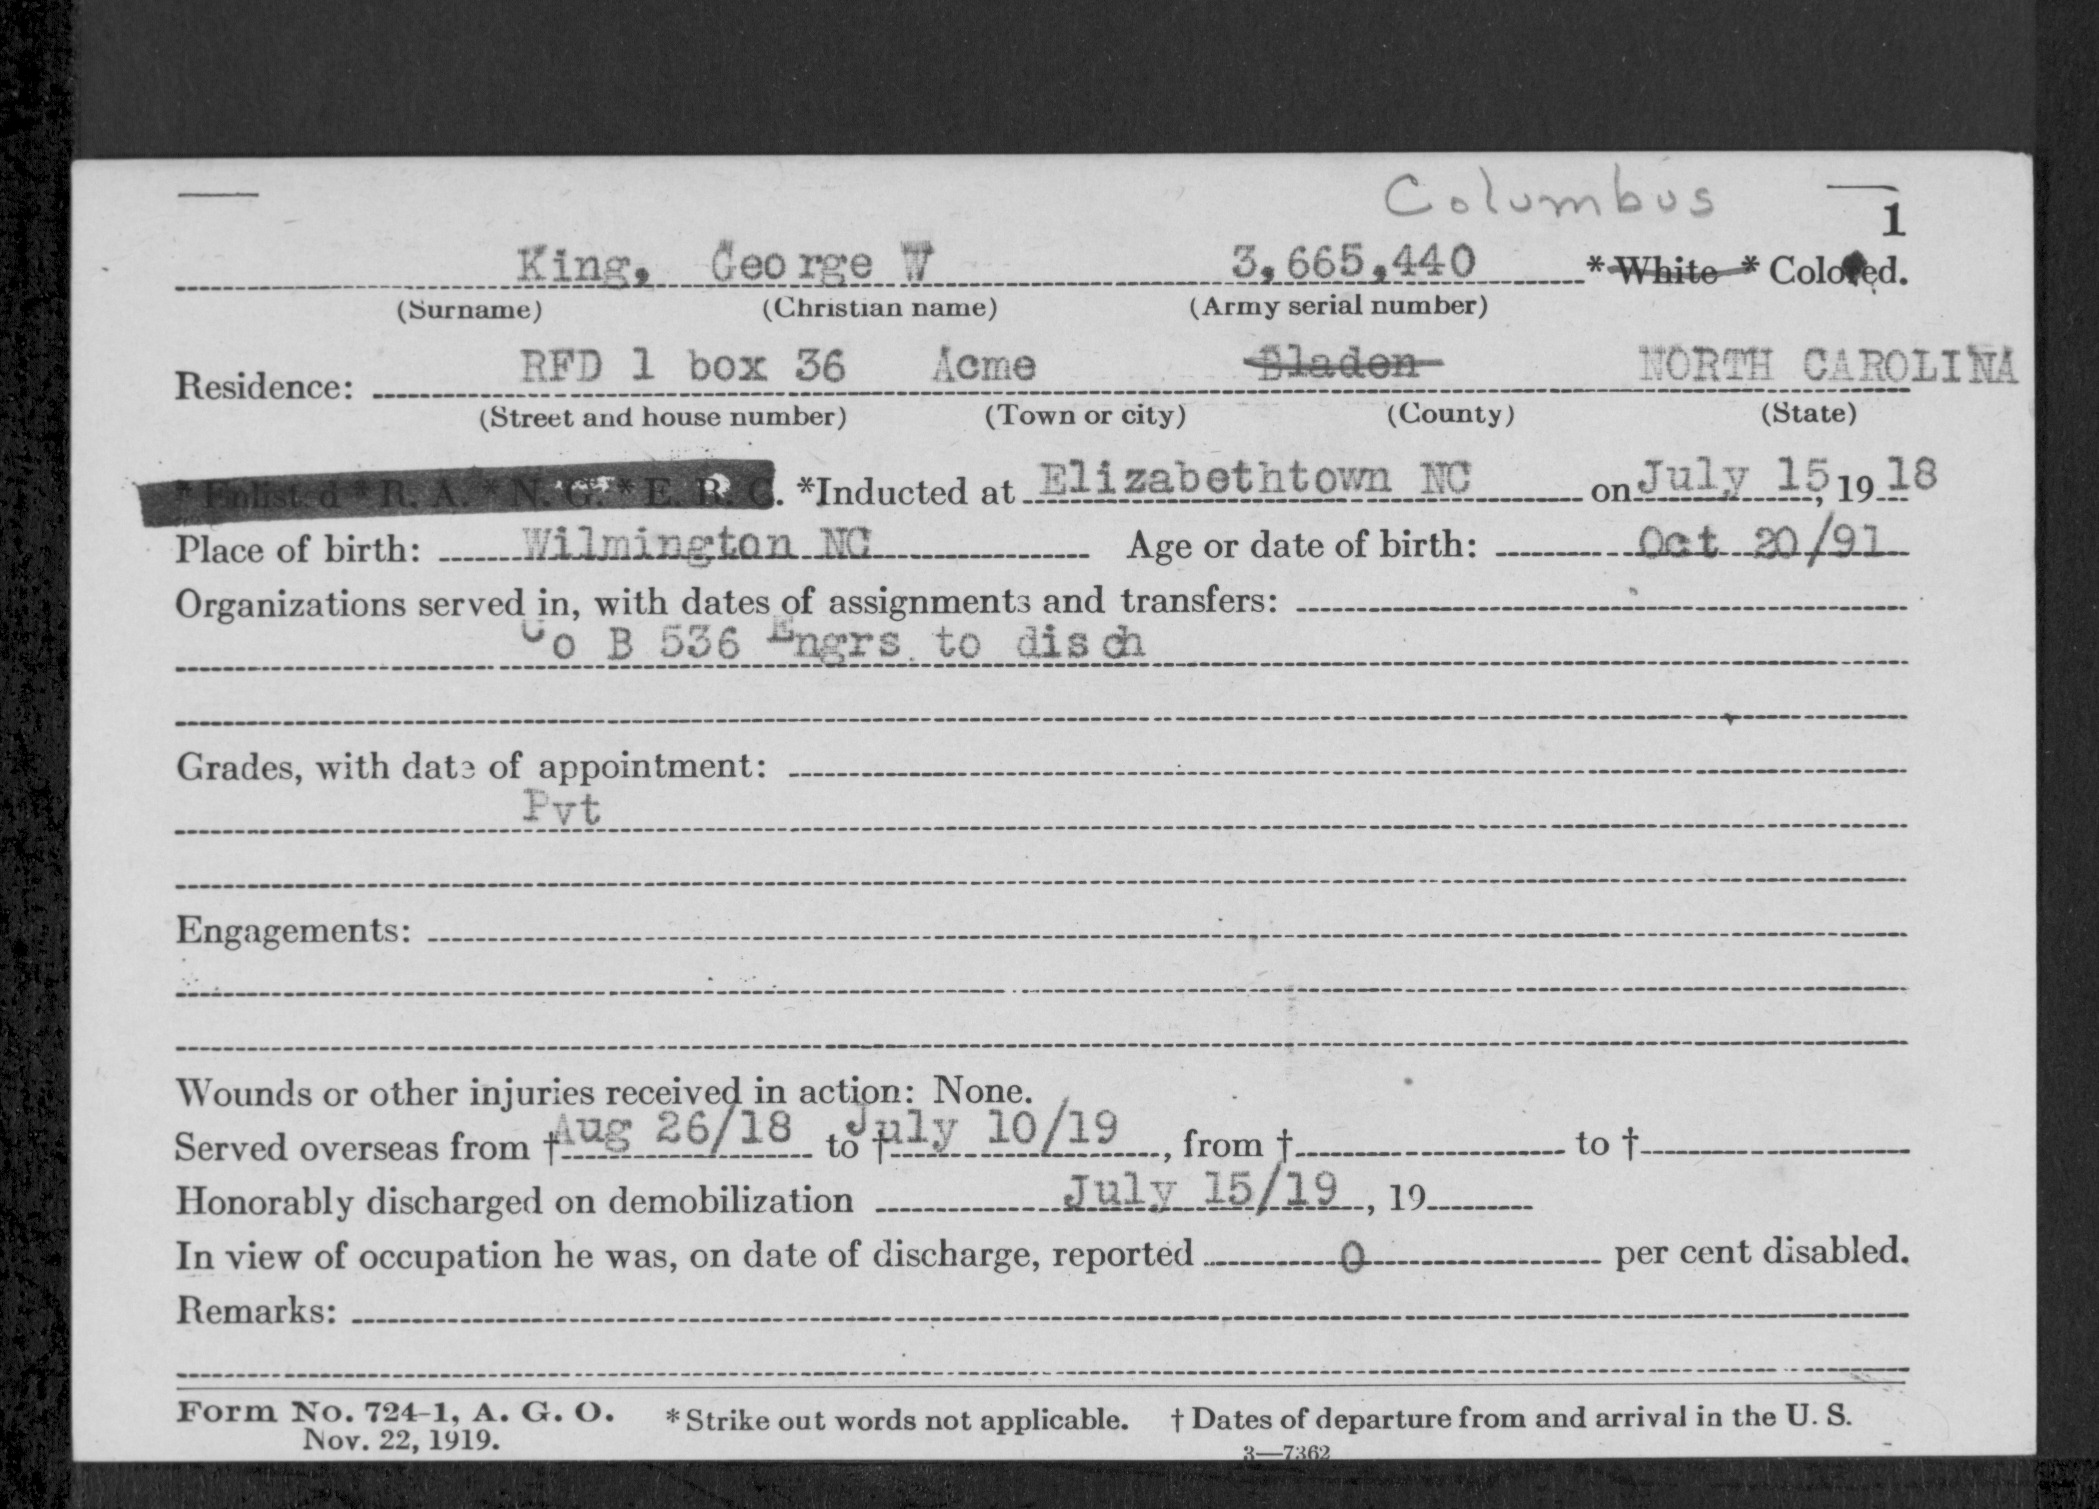 Columbus
1
King, George W 3,665,440 *White *Colored.
(Surname) (Christian name) (Army serial number)
Residence: RFD 1 box 36 Acme Bladen NORTH CAROLINA
(Street and house number) (Town or city) (County) (State)
* Enlisted * R. A. * N. G. * E. R. C. *Inducted at Elizabethtown NC on July 15, 19 18
Place of birth: Wilmington NC Age or date of birth: Oct 20/91
Organizations served in, with dates of assignments and transfers:
Co B 536 Engrs to disch
Grades, with date of appointment:
Pvt
Engagements:
Wounds or other injuries received in action: None.
Served overseas from † Aug 26/18 to † July 10/19, from † to †
Honorably discharged on demobilization July 15/19, 19
In view of occupation he was, on date of discharge, reported 0 per cent disabled.
Remarks:
Form No. 724-1, A. G. O. *Strike out words not applicable. † Dates of departure from and arrival in the U. S.
Nov. 22, 1919.
3—7362